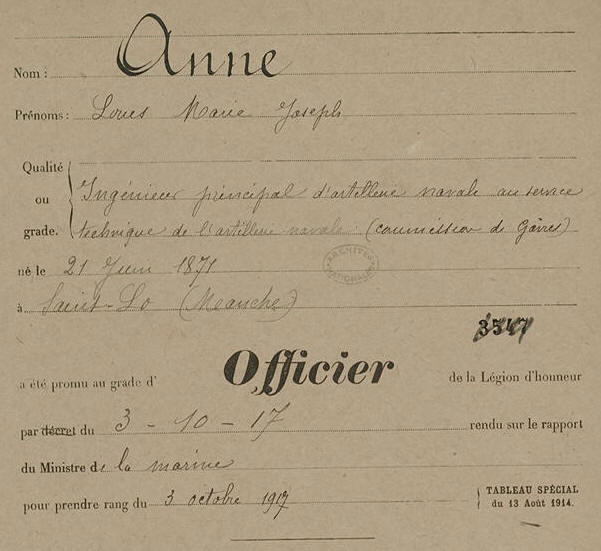 Nom : Anne
Prénoms : Louis Marie Joseph
Qualité ou grade. Ingénieur principal d'artillerie navale au service
technique de l'artillerie navale (commission de Gâvres)
né le 21 Juin 1871
à Saint-Lo (Manche)
ARCHIVES NATIONALES
a été promu au grade d' Officier de la Légion d'honneur
par décret du 3 - 10 - 17 rendu sur le rapport
du Ministre de la marine
pour prendre rang du 3 octobre 1917
TABLEAU SPÉCIAL
du 13 Août 1914.